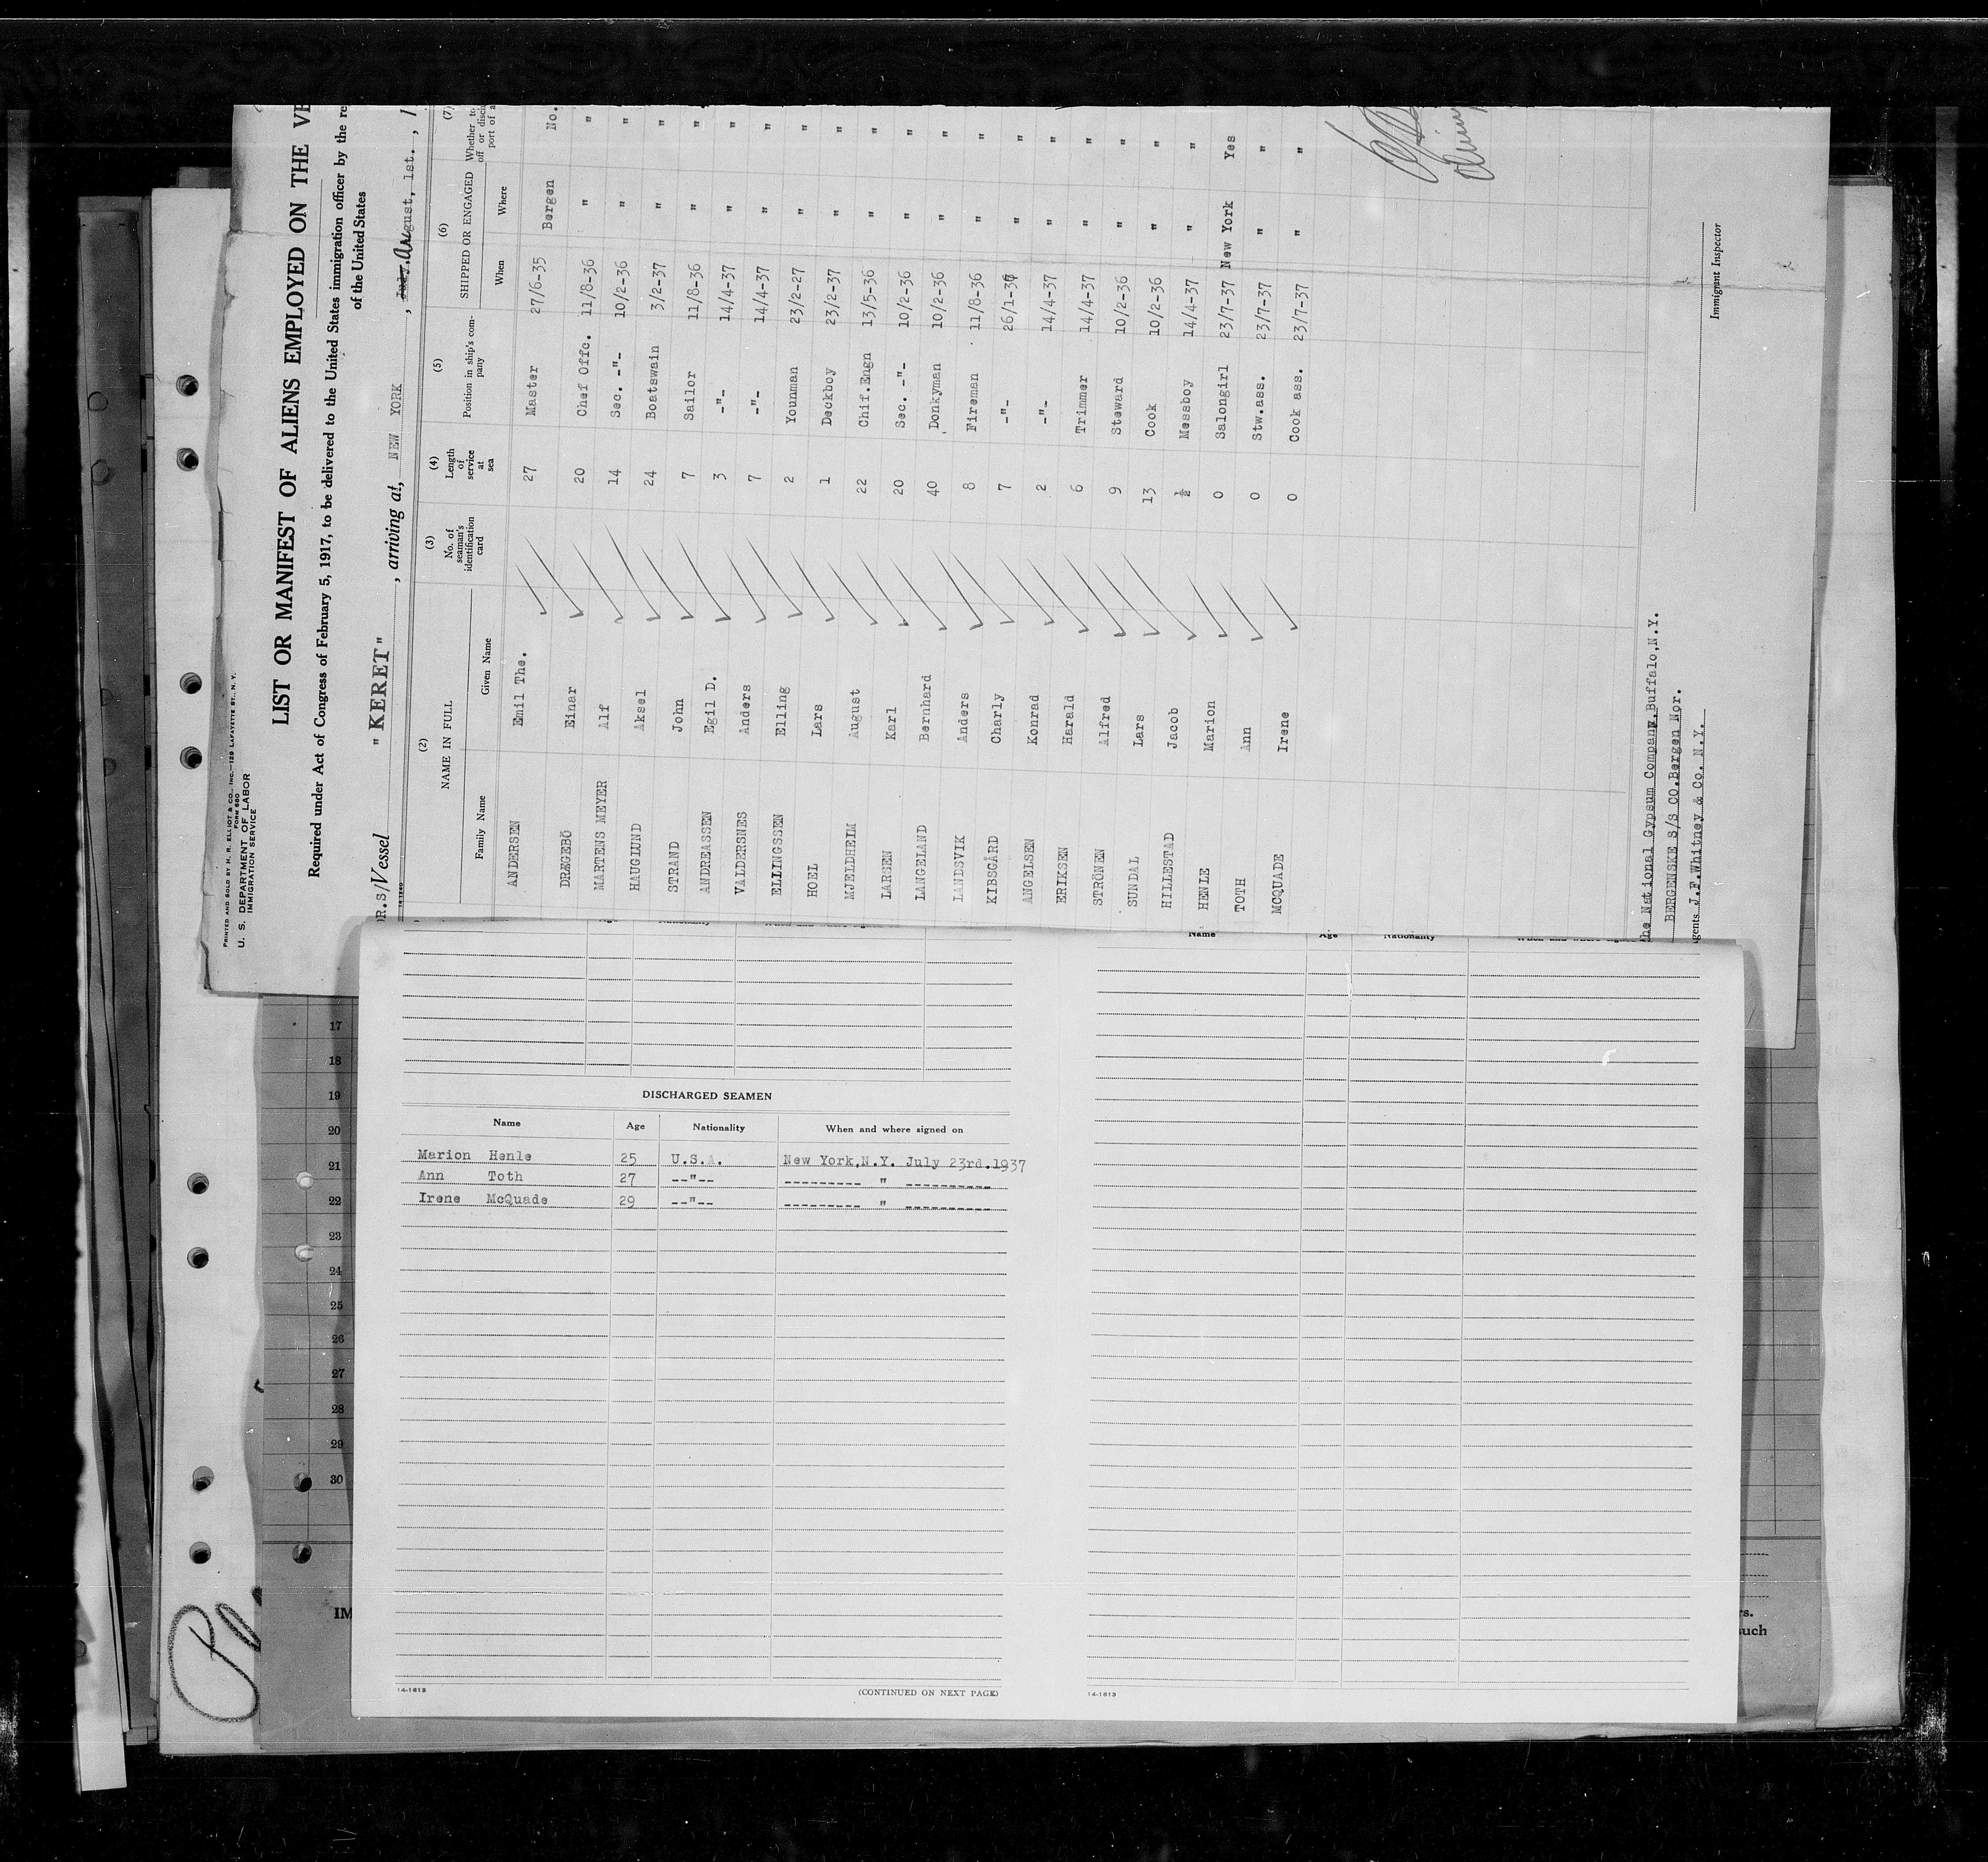 PRINTED AND SOLD BY H. R. ELLIOT & CO., INC.—129 LAFAYETTE ST., N. Y.
FORM 680
U. S. DEPARTMENT OF LABOR
IMMIGRATION SERVICE
LIST OR MANIFEST OF ALIENS EMPLOYED ON THE VE
Required under Act of Congress of February 5, 1917, to be delivered to the United States immigration officer by the re
of the United States
OR.S/Vessel "KERET", arriving at, NEW YORK, August, 1st., 1
(2) (3) (4) (5) (6) (7)
NAME IN FULL No. of seaman's identification card Length of service at sea Position in ship's company SHIPPED OR ENGAGED Whether to
Family Name Given Name When Where
ANDERSEN Emil The. 27 Master 27/6-35 Bergen No.
DRÆGEBÖ Einar 20 Chef Offc. 11/8-36 " "
MARTENS MEYER Alf 14 Sec. -"- 10/2-36 " "
HAUGLUND Aksel 24 Boatswain 3/2-37 " "
STRAND John 7 Sailor 11/8-36 " "
ANDREASSEN Egil D. 3 -"- 14/4-37 " "
VALDERSNES Anders 7 -"- 14/4-37 " "
ELLINGSSEN Elling 2 Younman 23/2-27 " "
HOEL Lars 1 Deckboy 23/2-37 " "
MJELDHEIM August 22 Chif.Engn 13/5-36 " "
LARSEN Karl 20 Sec. -"- 10/2-36 " "
LANGELAND Bernhard 40 Donkyman 10/2-36 " "
LANDSVIK Anders 8 Fireman 11/8-36 " "
KIBSGÅRD Charly 7 -"- 26/1-36 " "
ANGELSEN Konrad 2 -"- 14/4-37 " "
ERIKSEN Harald 6 Trimmer 14/4-37 " "
STRÖNEN Alfred 9 Steward 10/2-36 " "
SUNDAL Lars 13 Cook 10/2-36 " "
HILLESTAD Jacob ½ Messboy 14/4-37 " "
HENLE Marion 0 Salongirl 23/7-37 New York Yes
TOTH Ann 0 Stw.ass. 23/7-37 " "
MCQUADE Irene 0 Cook ass. 23/7-37 " "
he National Gypsum Company. Buffalo,N.Y.
BERGENSKE S/S CO.Bergen Nor.
gents J.F.Whitney & Co. N.Y.
Immigrant Inspector
Name Age Nationality
17
18
19
20
21
22
23
24
25
26
27
28
29
30
IM
DISCHARGED SEAMEN
Name Age Nationality When and where signed on
Marion Henle 25 U.S.A. New York,N.Y. July 23rd.1937
Ann Toth 27 --"-- --------- " ----------
Irene McQuade 29 --"-- --------- " ----------
14-1613
(CONTINUED ON NEXT PAGE)
14-1613
rs.
such